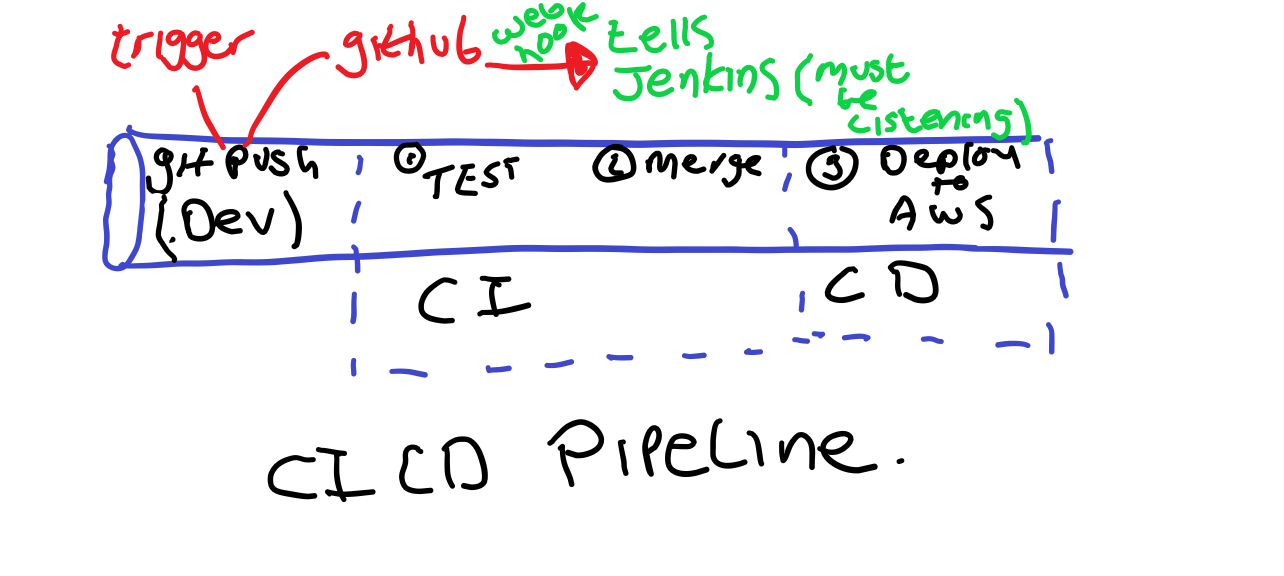 trigger
github
web
hook
tells
Jenkins (must
be
listening)
git push
(Dev)
1 TEST
2 merge
3 Deploy
to
AWS
CI
CD
CICD Pipeline.